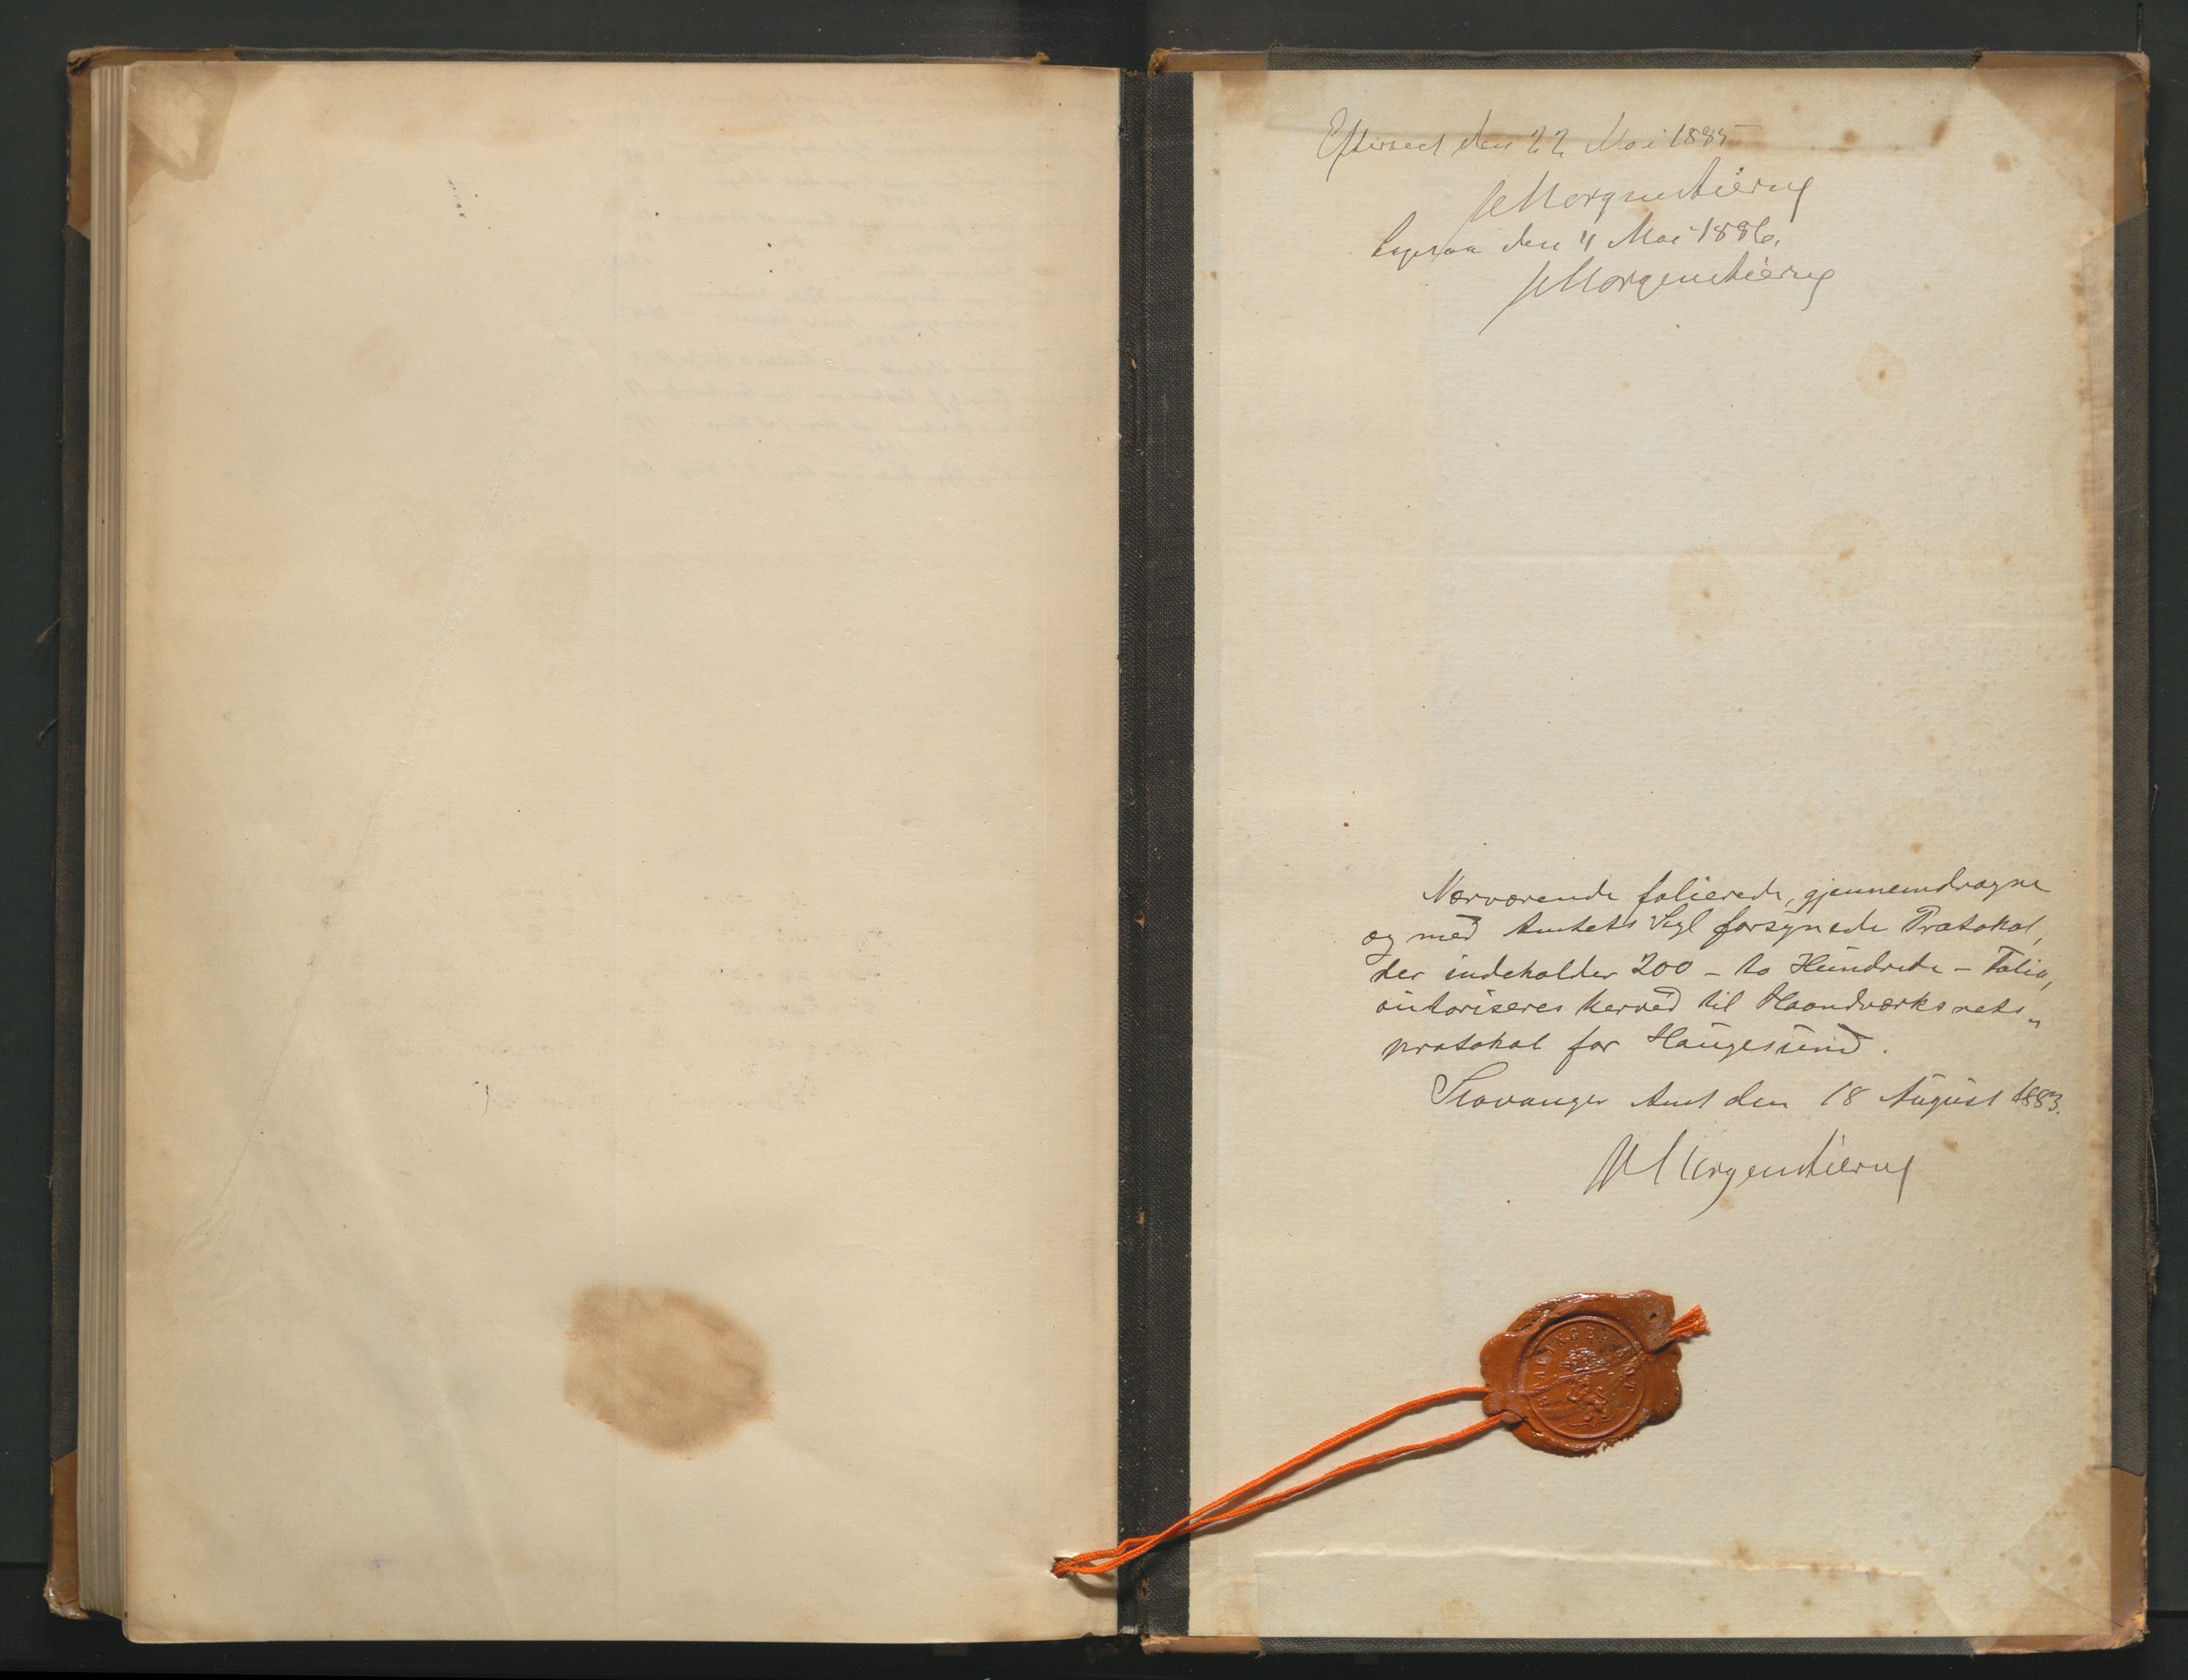 Efterseet den 22 Mai 1885
Morgenstierne
Ligesaa den 4 Mai 1886.
Morgenstierne
Nærværende folierede, gjennemdragne
og med Amtets Segl forsynede Protokol,
der indeholder 200 - to Hundrede - Folia,
autoriseres herved til Haandværksrets-
protokol for Haugesund.
Stavanger Amt den 18 August 1883.
Morgenstierne